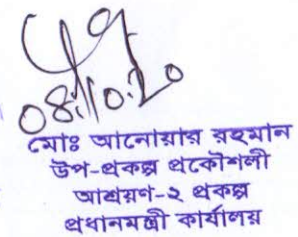 08.10.20
মোঃ আনোয়ার রহমান
উপ-প্রকল্প প্রকৌশলী
আশ্রয়ণ-২ প্রকল্প
প্রধানমন্ত্রী কার্যালয়